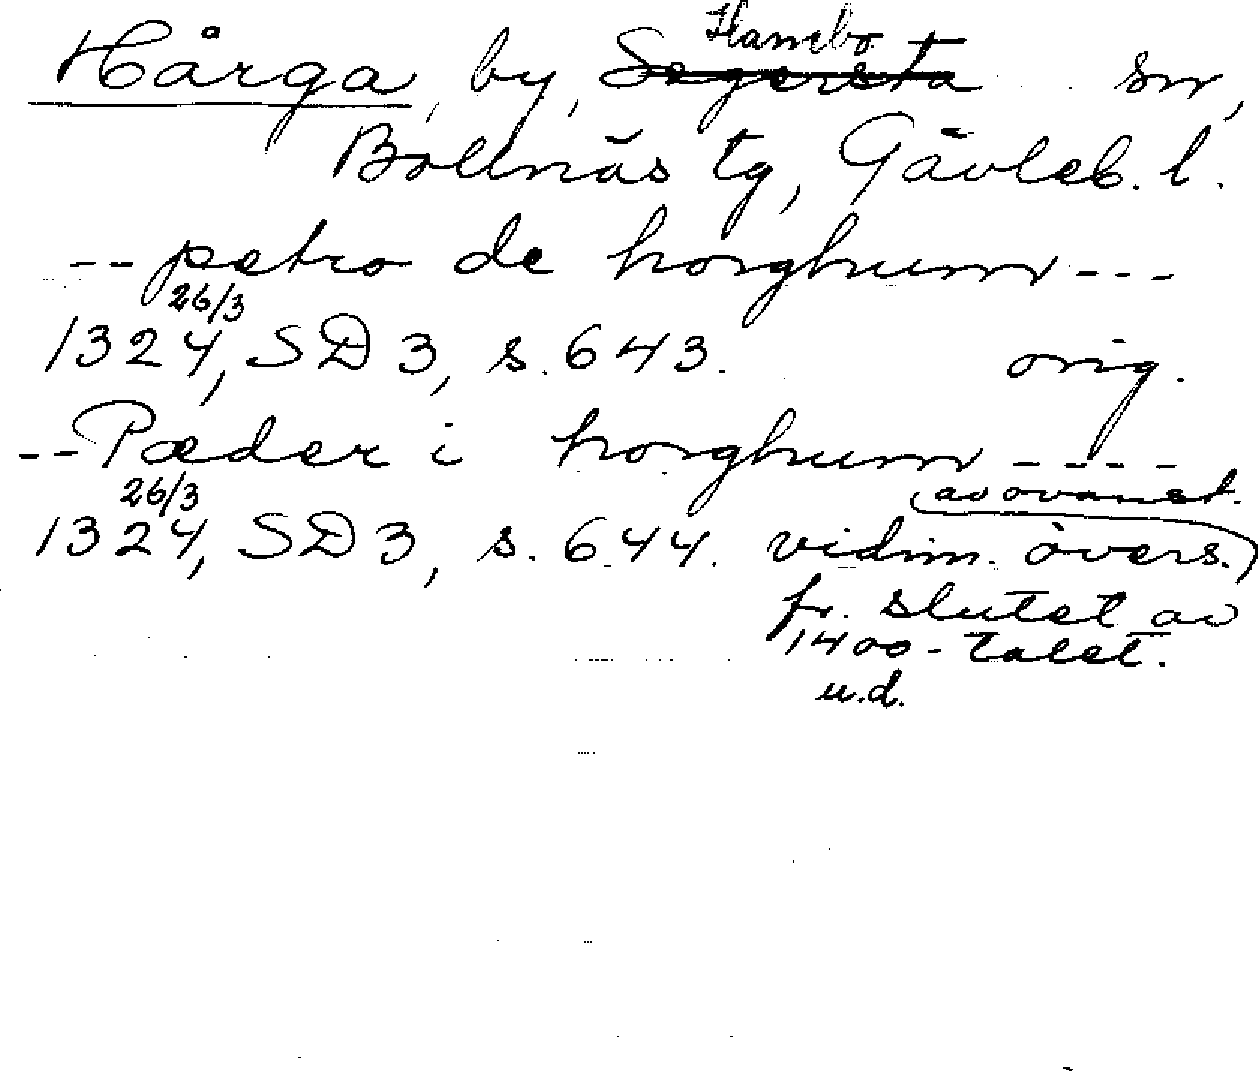 Hårga, by, Segersta Hanebo sn,
Bollnäs tg, Gävleb. l.
-- petro de horghum ---
26/3
1324, SD 3, s. 643. orig.
-- Pæder i horghum ----
26/3 av ovanst.
1324, SD 3, s. 644. vidim. övers.
fr. slutet av
1400-talet.
u.d.